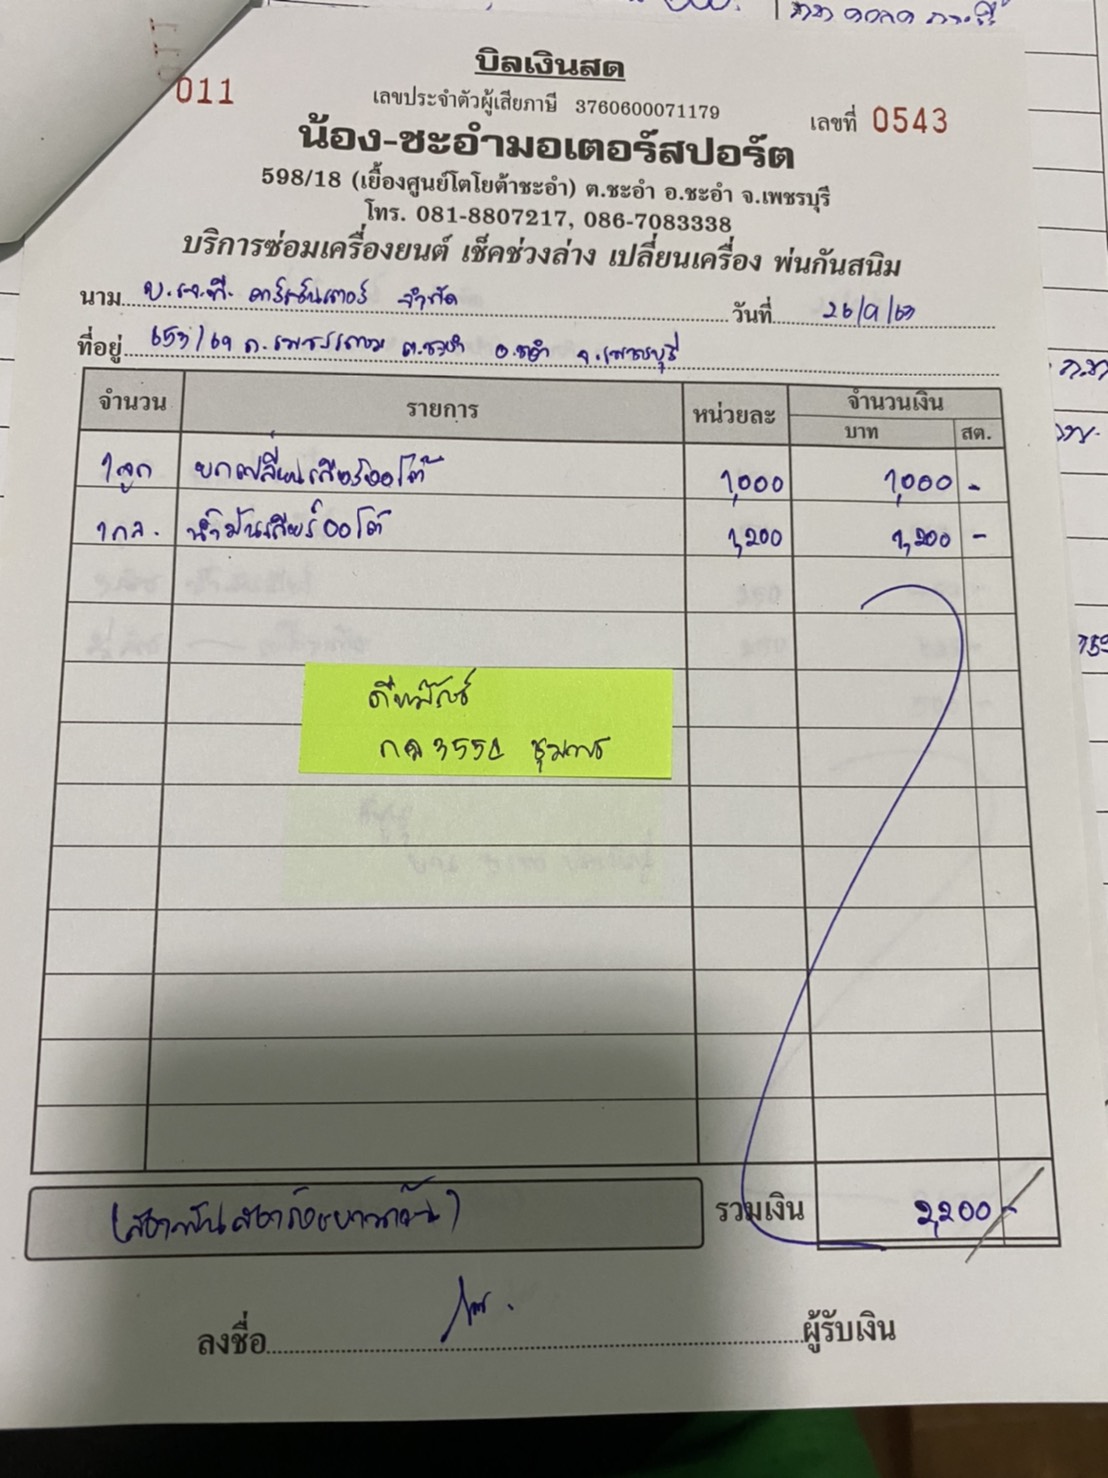 บิลเงินสด
011
เลขประจำตัวผู้เสียภาษี 3760600071179
เลขที่ 0543
น้อง-ชะอำมอเตอร์สปอร์ต
598/18 (เยื้องศูนย์โตโยต้าชะอำ) ต.ชะอำ อ.ชะอำ จ.เพชรบุรี
โทร. 081-8807217, 086-7083338
บริการซ่อมเครื่องยนต์ เช็คช่วงล่าง เปลี่ยนเครื่อง พ่นกันสนิม
นาม จำกัด วันที่ 26/9/63
ที่อยู่ 653/69 ถ.เพชรเกษม ต.ชะอำ อ.ชะอำ จ.เพชรบุรี
จำนวน รายการ หน่วยละ จำนวนเงิน
บาท สต.
1ลูก ยกเปลี่ยนเกียร์ออโต้ 1,000 1,000 -
1กล. น้ำมันเกียร์ออโต้ 1,200 1,200 -
ชุมพร
(สองพันสองร้อยบาทถ้วน) รวมเงิน 2,200 -
ลงชื่อ ผู้รับเงิน